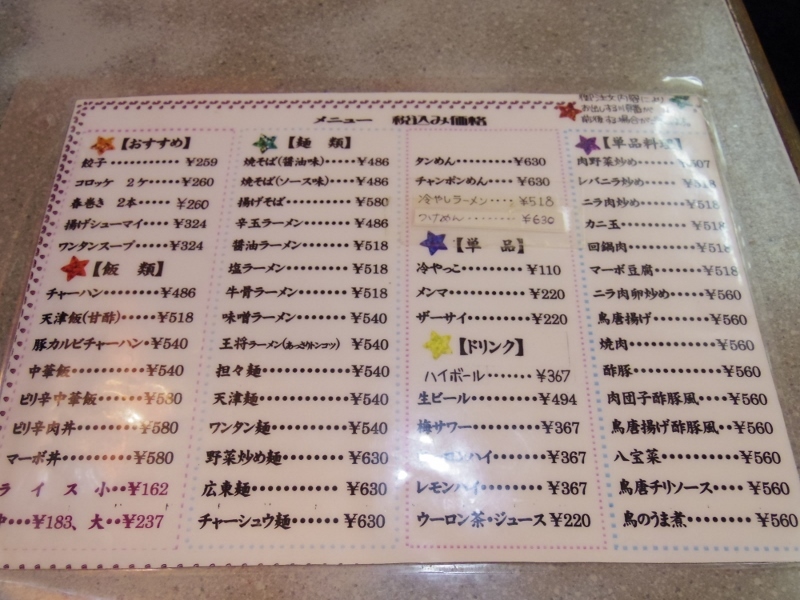 メニュー 税込み価格
【おすすめ】
餃子‥‥‥‥‥¥259
コロッケ 2ケ‥‥‥¥260
春巻き 2本‥‥‥¥260
揚げシューマイ‥‥‥¥324
ワンタンスープ‥‥‥¥324
【飯 類】
チャーハン‥‥‥‥¥486
天津飯(甘酢)‥‥‥¥518
豚カルビチャーハン・¥540
中華飯‥‥‥‥‥¥540
ピリ辛中華飯‥‥‥
ピリ辛肉丼‥‥‥‥¥580
マーボ丼‥‥‥‥‥¥580
ライス 小‥¥162
中‥¥183、大‥¥237
【麺 類】
焼そば(醤油味)‥‥¥486
焼そば(ソース味)‥‥¥486
揚げそば‥‥‥‥¥580
辛玉ラーメン‥‥‥¥486
醤油ラーメン‥‥‥¥518
塩ラーメン‥‥‥‥¥518
牛骨ラーメン‥‥‥¥518
味噌ラーメン‥‥‥¥540
王将ラーメン(あっさりトンコツ)‥‥¥540
担々麺‥‥‥‥‥¥540
天津麺‥‥‥‥‥¥540
ワンタン麺‥‥‥‥¥540
野菜炒め麺‥‥‥‥¥630
広東麺‥‥‥‥‥¥630
チャーシュウ麺‥‥‥¥630
タンめん‥‥‥‥¥630
チャンポンめん‥‥‥¥630
冷やしラーメン‥‥¥518
つけめん‥‥‥‥¥630
【単 品】
冷やっこ‥‥‥‥¥110
メンマ‥‥‥‥‥¥220
ザーサイ‥‥‥‥¥220
【ドリンク】
ハイボール‥‥‥¥367
生ビール‥‥‥‥¥494
梅サワー‥‥‥‥¥367
ンハイ‥‥‥‥¥367
レモンハイ‥‥‥‥¥367
ウーロン茶・ジュース¥220
【単品料理】
肉野菜炒め‥‥‥
レバニラ炒め‥‥‥¥518
ニラ肉炒め‥‥‥‥¥518
カニ玉‥‥‥‥‥¥518
回鍋肉‥‥‥‥‥¥518
マーボ豆腐‥‥‥‥¥518
ニラ肉卵炒め‥‥‥¥560
鳥唐揚げ‥‥‥‥¥560
焼肉‥‥‥‥‥‥¥560
酢豚‥‥‥‥‥‥¥560
肉団子酢豚風‥‥‥¥560
鳥唐揚げ酢豚風‥‥¥560
八宝菜‥‥‥‥‥¥560
鳥唐チリソース‥‥¥560
鳥のうま煮‥‥‥‥¥560